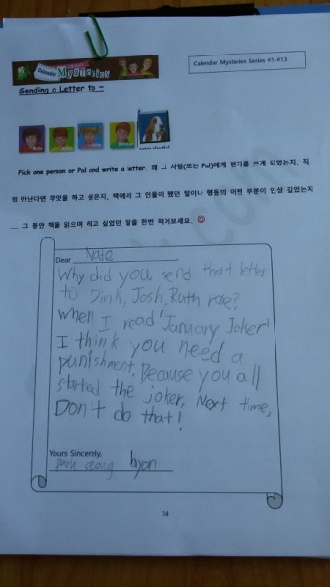 Calendar
Mysteries
Calendar Mysteries Series #1-#13
Sending a Letter to ~
Pick one person or Pal and write a letter. 왜 그 사람(또는 Pal)에게 편지를 쓰게 되었는지, 직
접 만난다면 무엇을 하고 싶은지, 책에서 그 인물이 했던 말이나 행동의 어떤 부분이 인상 깊었는지
... 그 동안 책을 읽으며 하고 싶었던 말을 한번 적어보세요. ☺
Dear Nate
Why did you send that letter
to Dink, Josh, Ruth rose?
When I read 'January Joker'
I think you need a
punishment. Because you all
started the joker. Next time,
Don't do that!
Yours Sincerely,
hyon
14